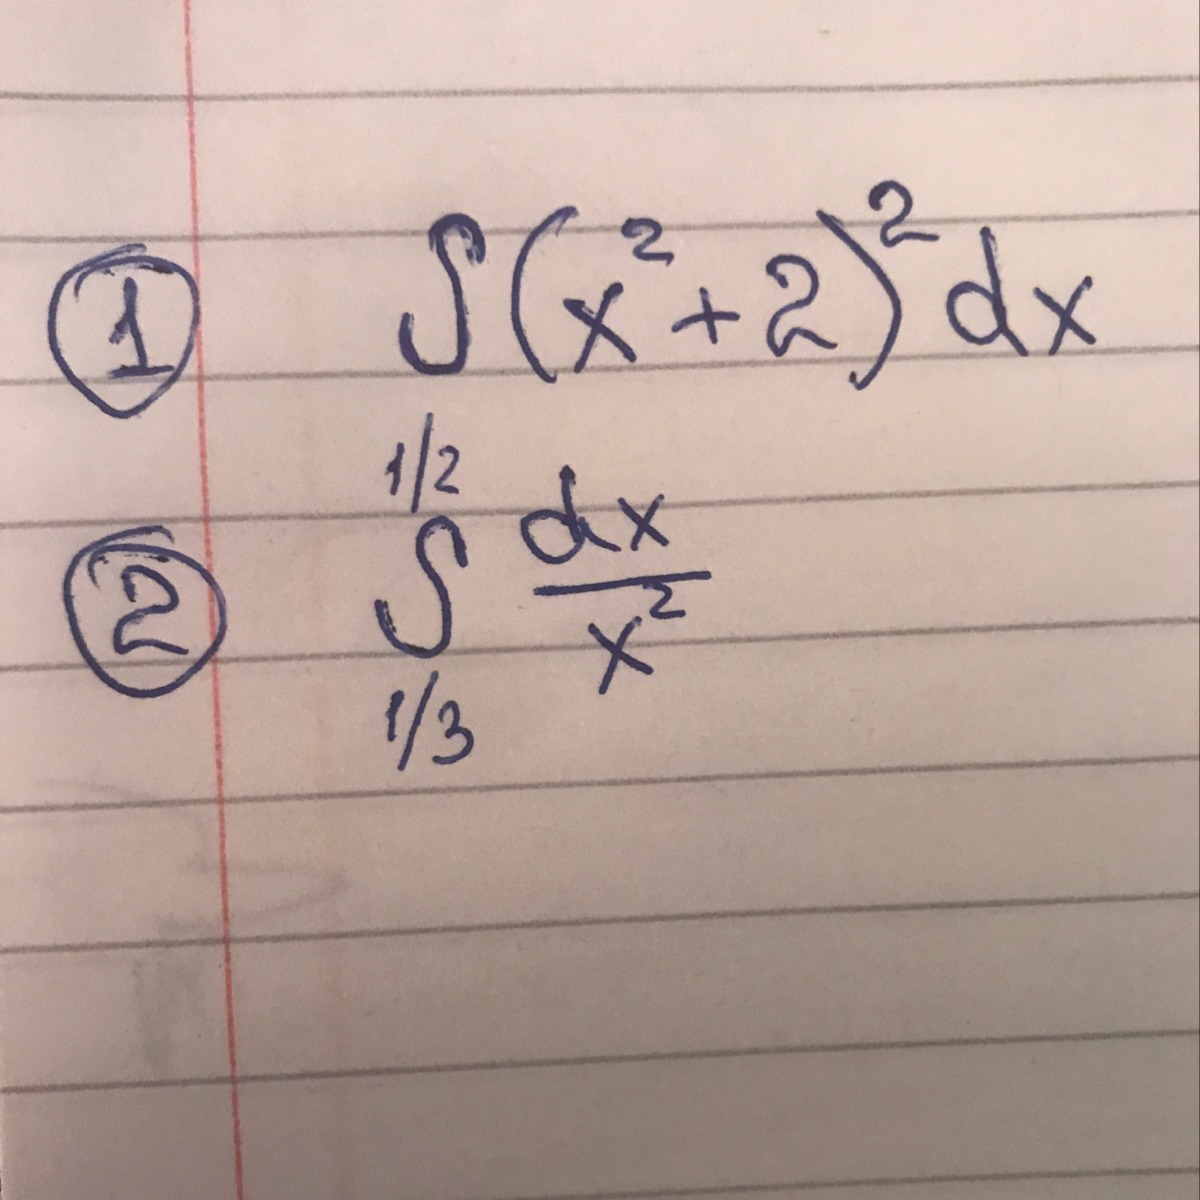 ① ∫(x²+2)²dx
② ∫_{1/3}^{1/2} dx/x²